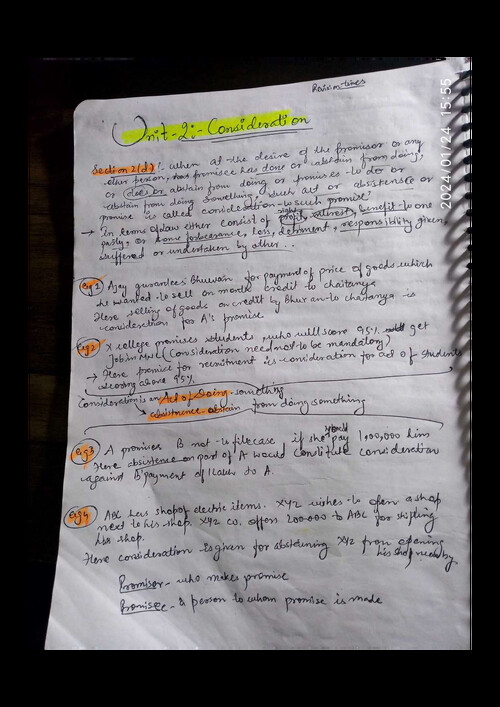 Revision-times
Unit-2:- Consideration
Section 2(d):- When at the desire of the promisor or any
other person, promisee has done or abstain from doing,
or does or abstain from doing or promises to do or
abstain from doing something, such act or abstinence or
promise is called consideration to such promise.
→ In terms of law either consist of right, profit, interest, benefit to one
party, or some forbearance, loss, detriment, responsibility given,
suffered or undertaken by other...
eg 1 Ajay gurantees Bhuwan for payment of price of goods which
he wanted to sell on month credit to chaitanya
Here selling of goods on credit by Bhuwan to chaitanya is
consideration for A's promise
eg 2 X college promises students, who will score 95% get
Job in (Consideration need not to be mandatory)
→ Here promise for recruitment is consideration for act of students
scoring above 95%
Consideration is an Act of Doing something
→ abstinence abstain from doing something
eg 3 A promises B not to file case if she would pay 1,00,000 him
Here abstinence on part of A would constitute consideration
against B payment of 1 lakh to A.
eg 4 ABC has shop of electric items. XYZ wishes to open a shop
next to his shop. XYZ co. offers 200000 to ABC for shifting
his shop.
Here consideration is given for abstaining XYZ from opening
his shop nearby
Promisor - who makes promise
Promisee - a person to whom promise is made
2024/01/24 15:55